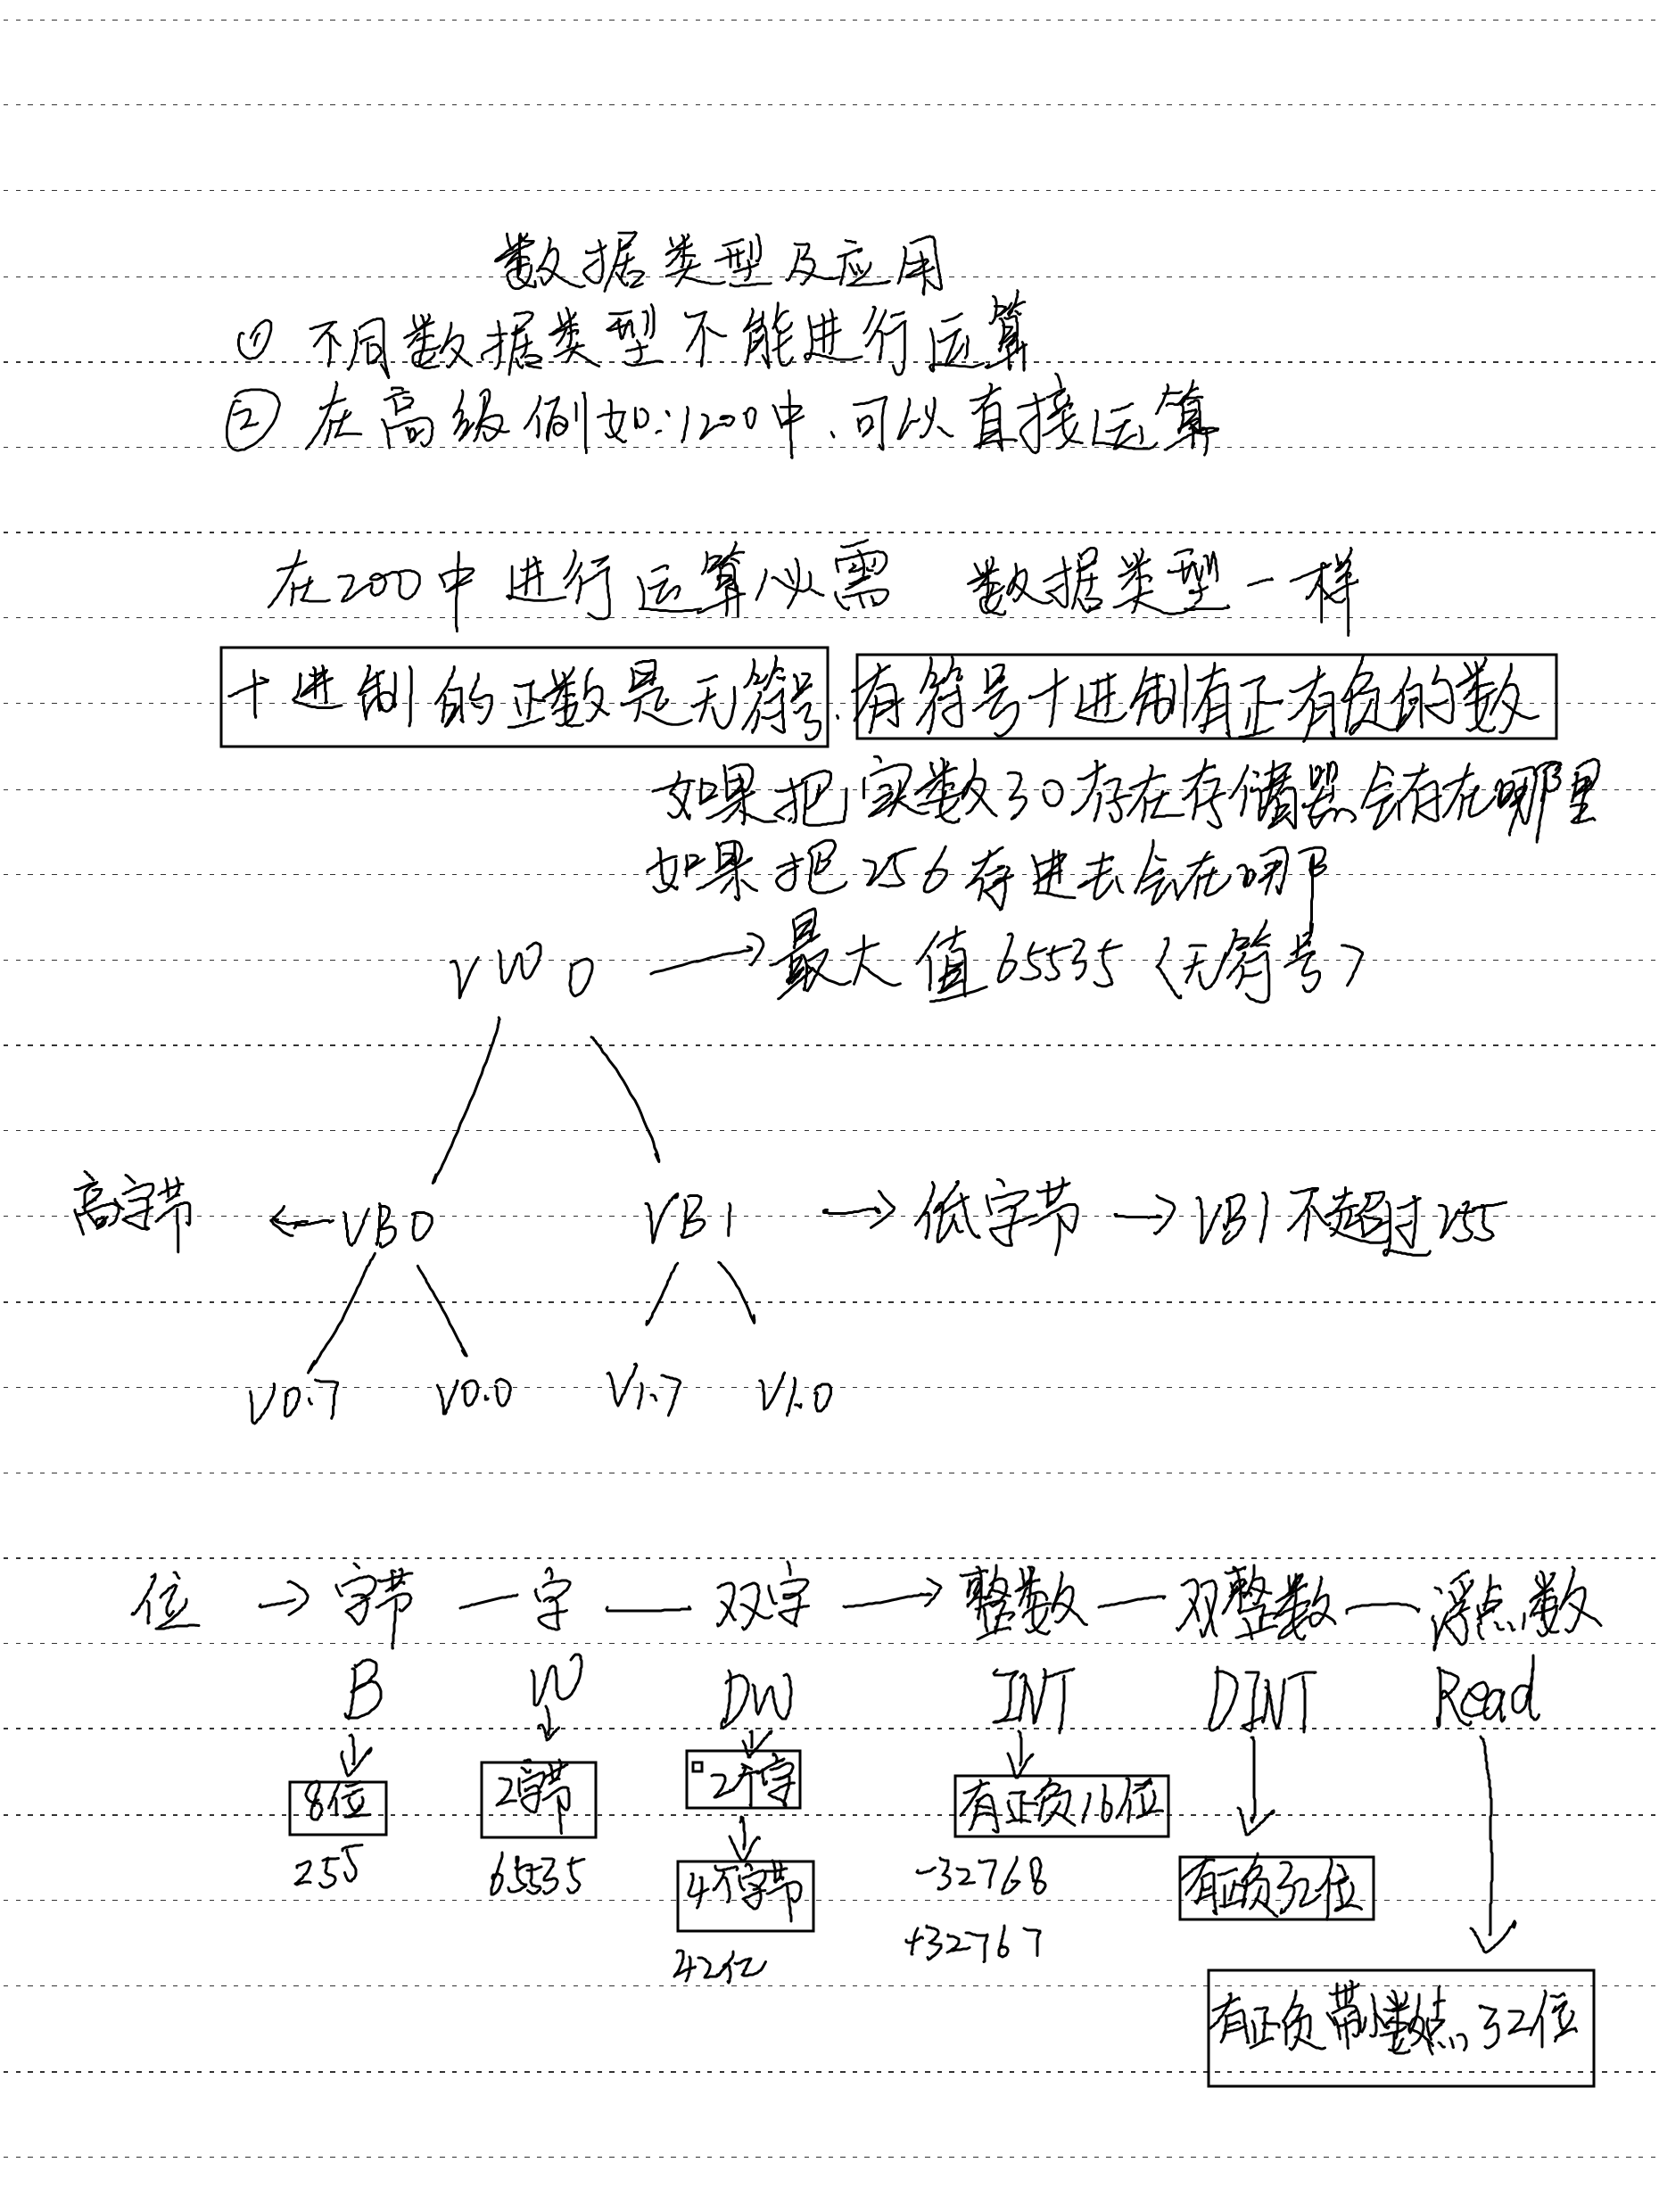 数据类型及应用
① 不同数据类型不能进行运算
② 在高级例如:1200中、可以直接运算
在200中进行运算必需 数据类型一样
十进制的正数是无符号. 有符号十进制有正有负的数
如果把实数30存在存储器会存在哪里
如果把256存进去会在哪
VW0 → 最大值65535(无符号)
高字节 ← VB0 VB1 → 低字节 → VB1不超过255
V0.7 V0.0 V1.7 V1.0
位 → 字节 — 字 — 双字 → 整数 — 双整数 — 浮点数
B W DW INT DINT Read
8位 2字节 2个字 有正负16位
255 65535 4个字节 -32768 有正负32位
42亿 +32767
有正负带小数点32位